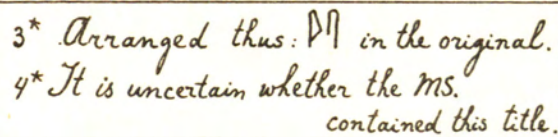 3* Arranged thus: ᚹᚢ in the original.
4* It is uncertain whether the MS.
contained this title.